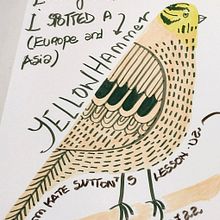 I SPOTTED A
(EUROPE and
ASIA)
YELLOWHAMMER
KATE SUTTON'S LESSON